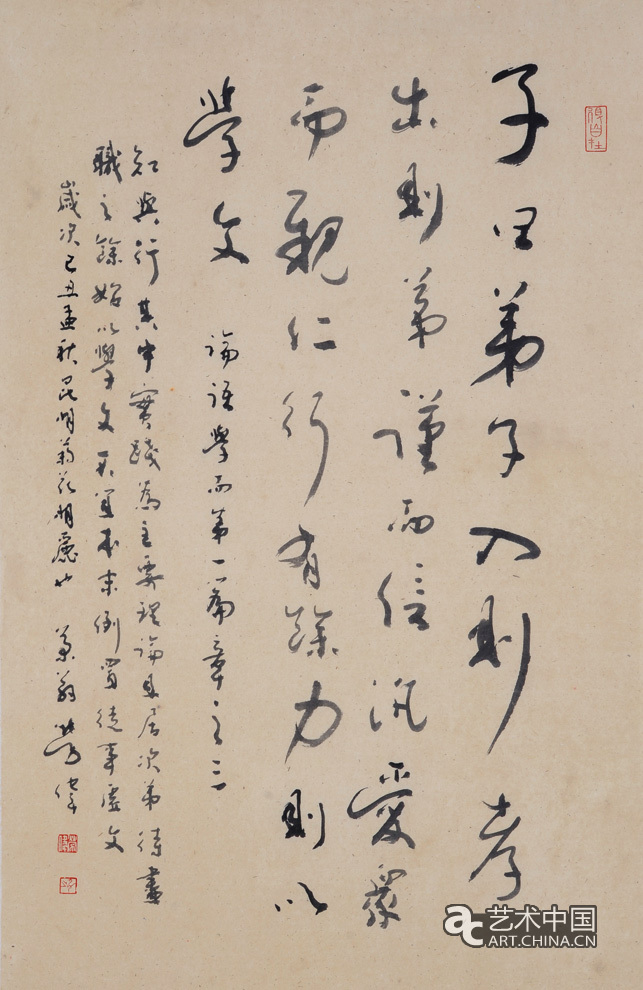 子曰弟子入則孝
出則弟謹而信汎愛眾
而親仁行有餘力則以
學文
論語學而第一篇章之三
知與行其中實踐為主要理論且居次弟待盡
職之餘始以學文不宜本末倒置徒事虛文
歲次己丑孟秋昆明
艺术中国
ART.CHINA.CN